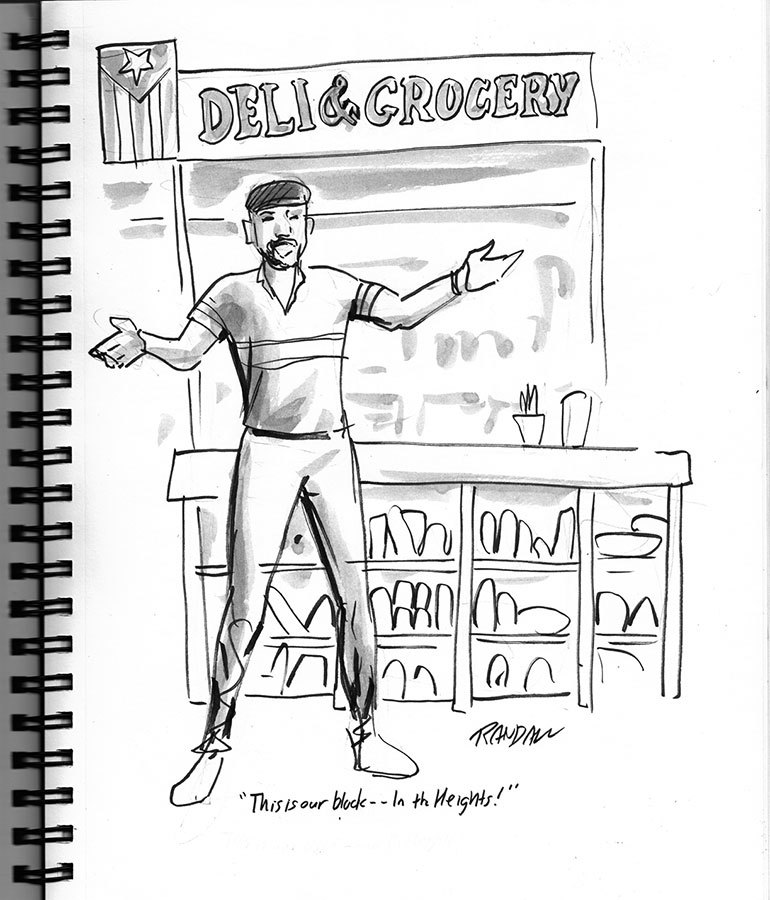 DELI & GROCERY
RANDALL
"This is our block -- In th Heights!"